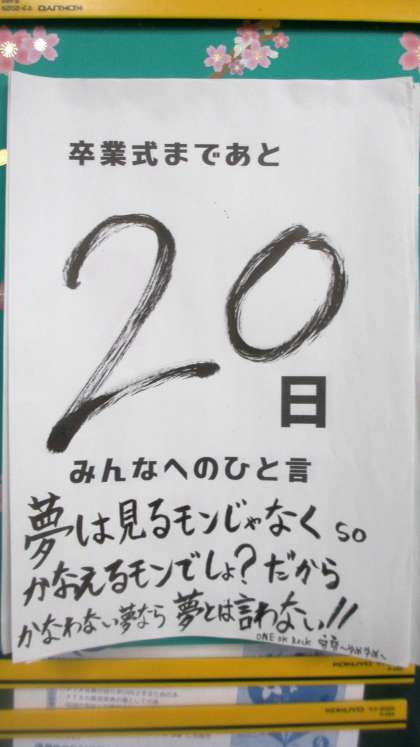 KOKUYO
卒業式まであと
20
日
みんなへのひと言
夢は見るモンじゃなく so
かなえるモンでしょ?だから
かなわない夢なら 夢とは言わない!!
ONE OK Rock
KOKUYO